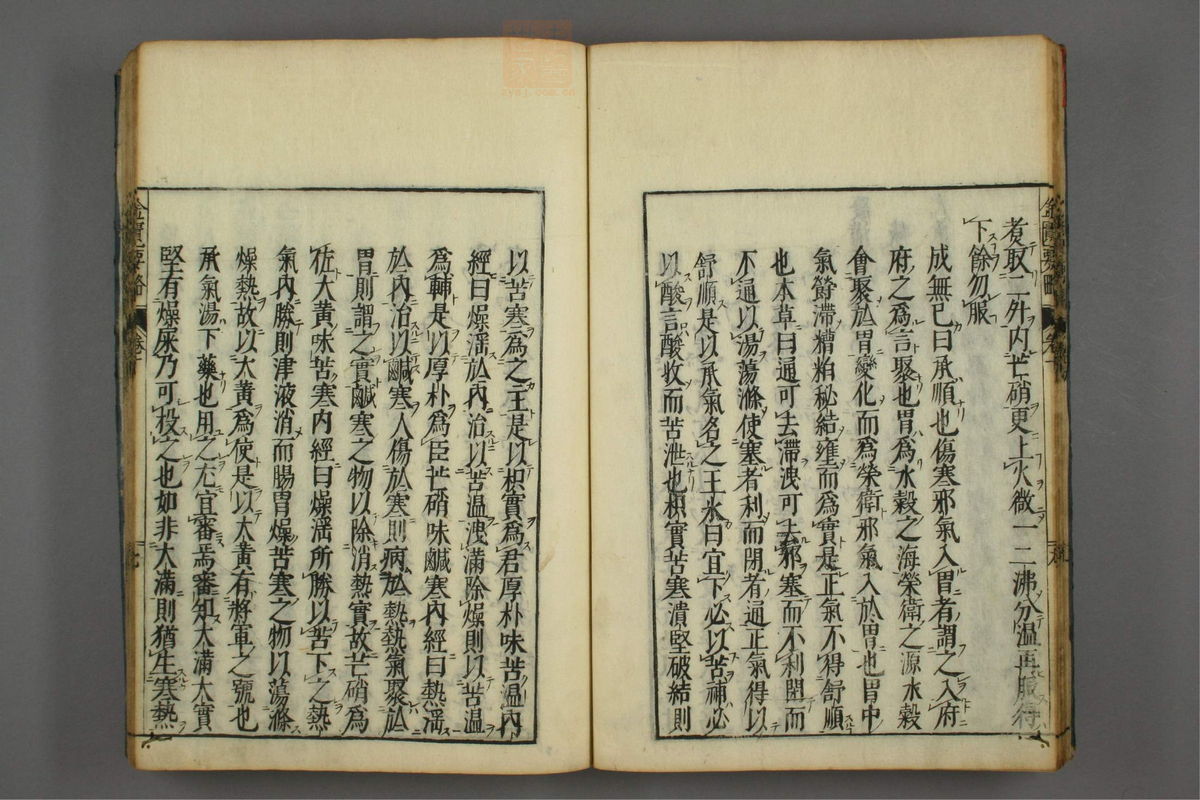 煮取二升内芒硝更上火微一二沸分温再服得
下餘勿服
成無已曰承順也傷寒邪氣入胃者謂之入府
府之為言聚也胃為水穀之海榮衛之源水穀
會聚於胃變化而為榮衛邪氣入於胃也胃中
氣欝滯糟粕秘結壅而為實是正氣不得舒順
也本草曰通可去滯洩可去邪塞而不利閉而
不通以湯蕩滌使塞者利而閉者通正氣得以
舒順是以承氣名之王氷曰宜下必以苦補必
以酸言酸收而苦泄也枳實苦寒潰堅破結則
以苦寒為之主是以枳實為君厚朴味苦温内
經曰燥淫於内治以苦温洩滿除燥則以苦温
為輔是以厚朴為臣芒硝味鹹寒内經曰熱淫
於内治以鹹寒人傷於寒則病於熱熱氣聚於
胃則謂之實鹹寒之物以除消熱實故芒硝為
佐大黃味苦寒内經曰燥淫所勝以苦下之熱
氣内勝則津液消而腸胃燥苦寒之物以蕩滌
燥熱故以大黃為使是以大黃有將軍之號也
承氣湯下藥也用之尤宜審焉審知大滿大實
堅有燥屎乃可投之也如非大滿則猶生寒熱
金匱要略 卷上
金匱要略 卷上